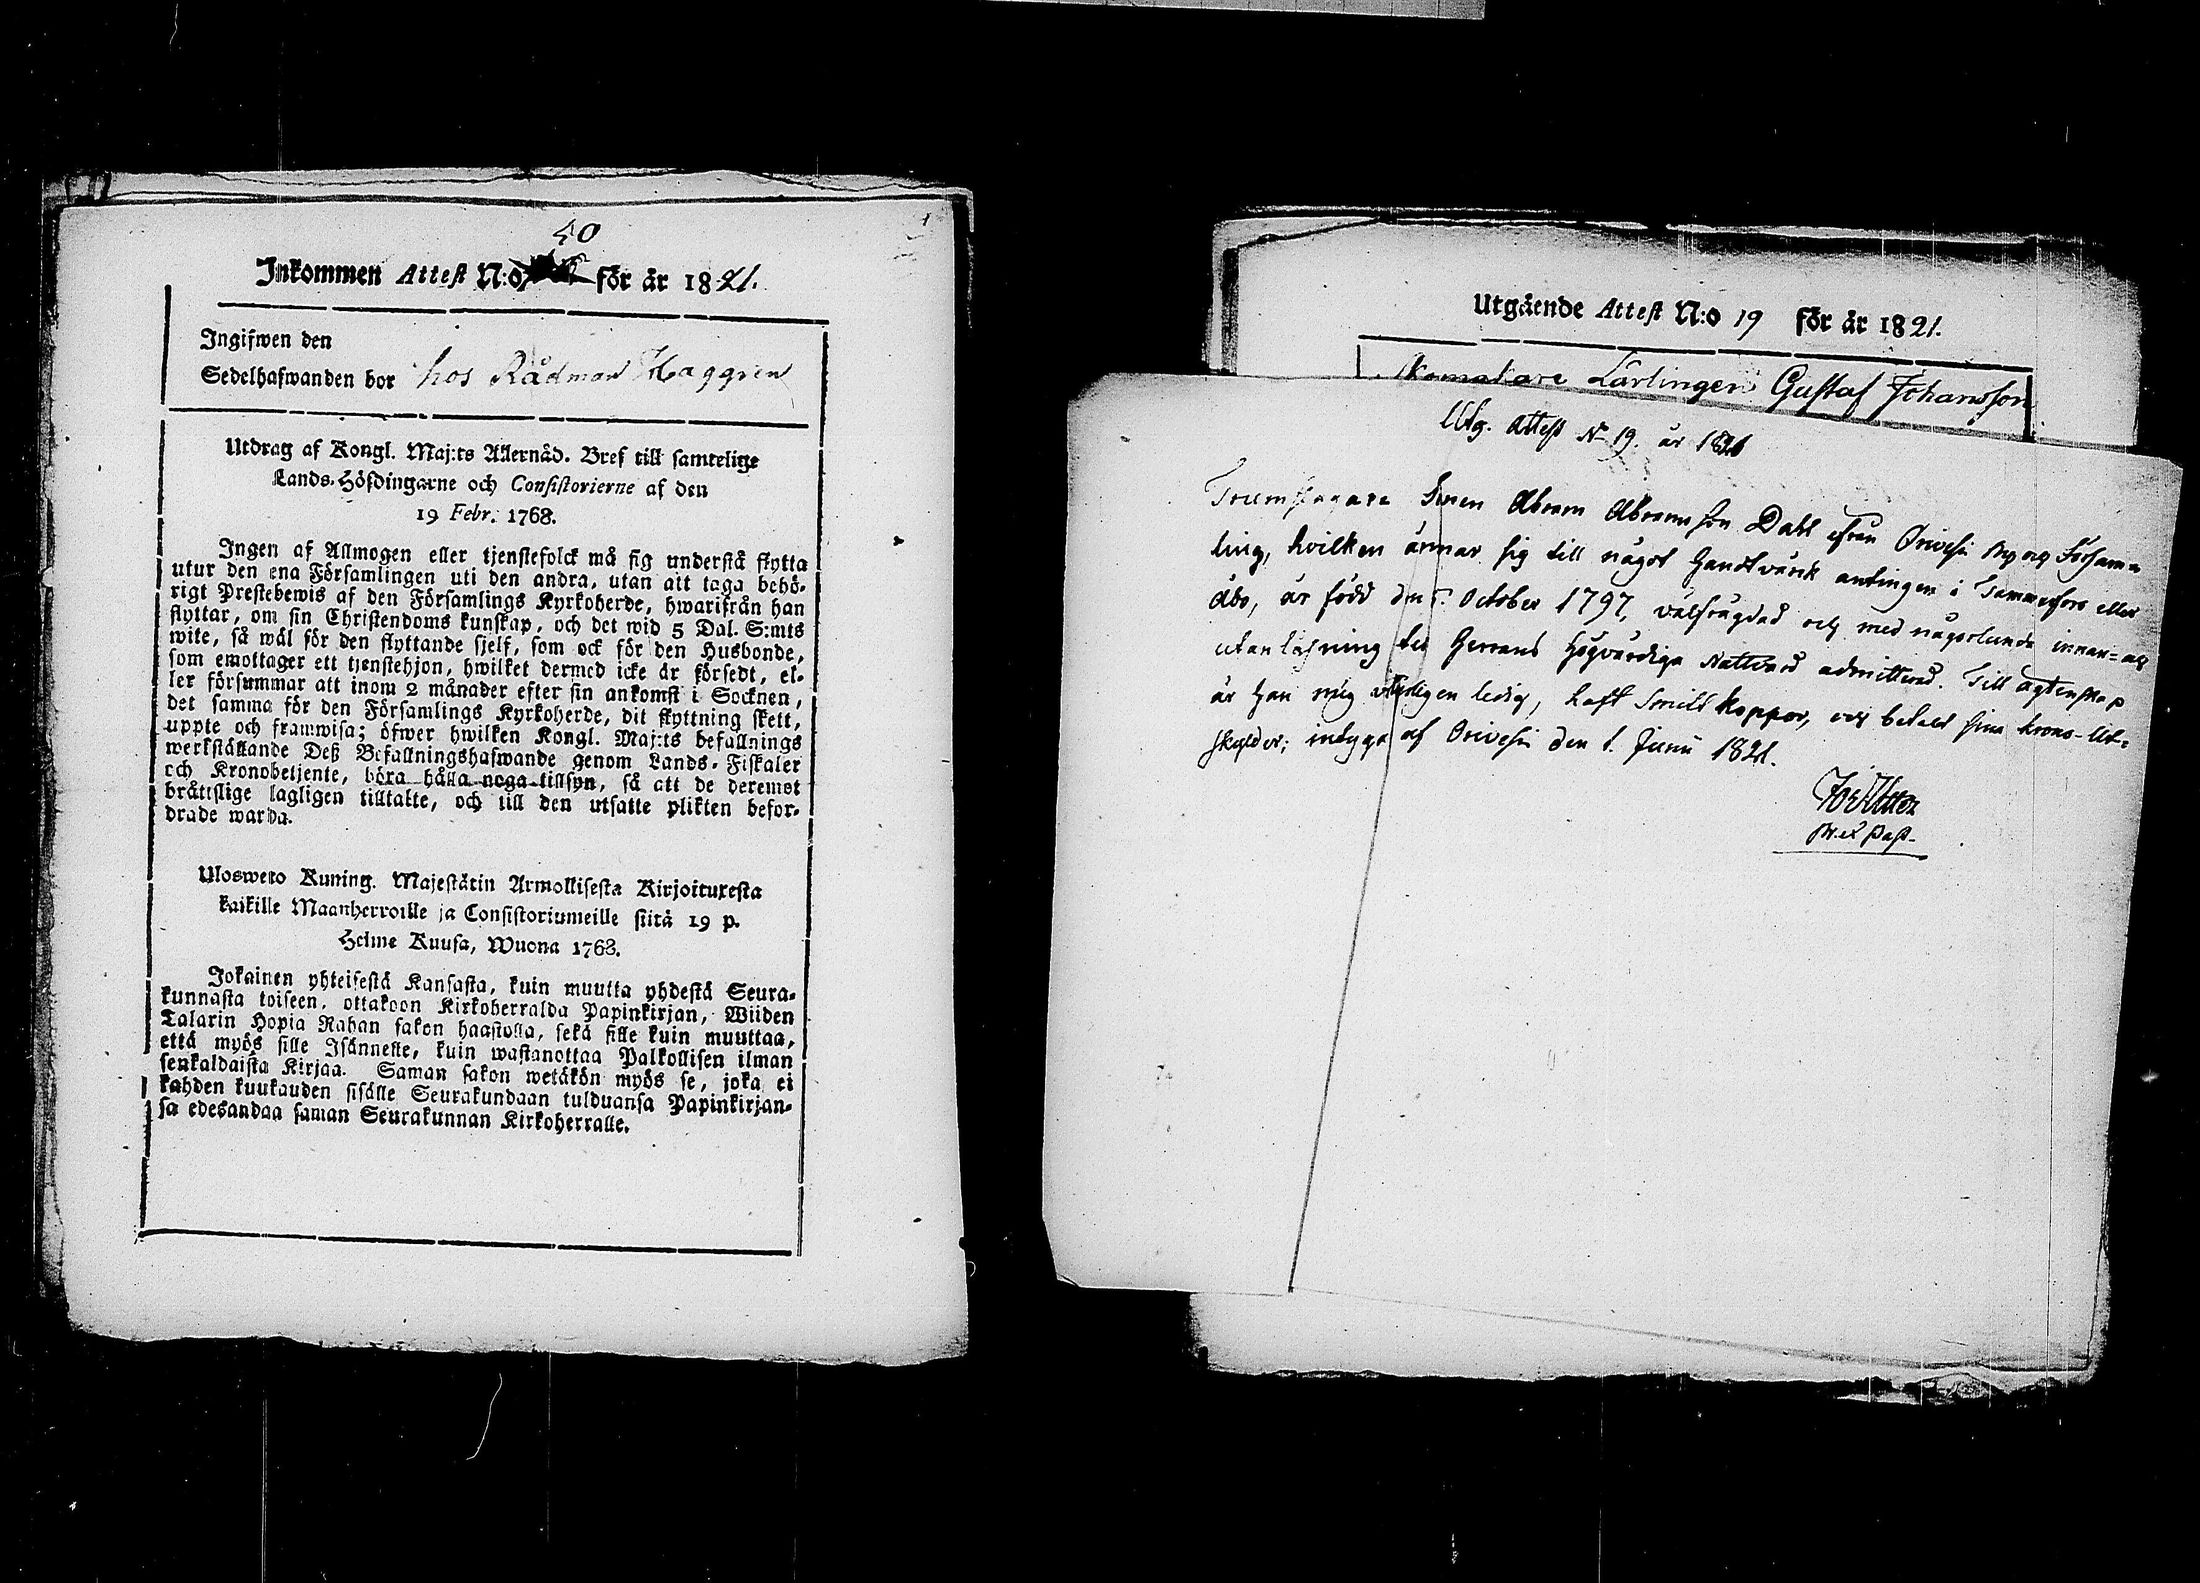 40
Inkommen Attest N:o för år 1821.
Ingifwen den
Sedelhafwanden bor hos Rådman Haggren
Utdrag af Kongl. Maj:ts Allernåd. Bref till samtelige
Lands-Höfdingarne och Consistorierne af den
19 Febr. 1768.
Ingen af Allmogen eller tjenstefolck må sig understå flytta
utur den ena Församlingen uti den andra, utan att taga behö-
rigt Prestebewis af den Församlings Kyrkoherde, hwarifrån han
flyttar, om sin Christendoms kunskap, och det wid 5 Dal. S:mts
wite, så wäl för den flyttande sjelf, som ock för den Husbonde,
som emottager ett tjenstehjon, hwilket dermed icke är försedt, el-
ler försummar att inom 2 månader efter sin ankomst i Socknen,
det samma för den Församlings Kyrkoherde, dit flyttning skett,
uppte och framwisa; öfwer hwilken Kongl. Maj:ts befallnings
werkställande Deß Befallningshafwande genom Lands-Fiskaler
och Kronobetjente, böra hålla noga tillsyn, så att de deremot
bråttslige lagligen tilltalte, och till den utsatte plikten befor-
drade warda.
Ulosweto Kuning. Majestätin Armollisesta Kirjoituxesta
kaikille Maanherroille ja Consistoriumeille siitä 19 p.
Helme Kuusa, Wuona 1768.
Jokainen yhteisestä Kansasta, kuin muutta yhdestä Seura-
kunnasta toiseen, ottakoon Kirkoherralda Papinkirjan, Wiiden
Talarin Hopia Rahan sakon haastolla, sekä sille kuin muuttaa,
että myös sille Isännelle, kuin wastanottaa Palkollisen ilman
senkaldaista Kirjaa. Saman sakon wetäkön myös se, joka ei
kahden kuukauden sisälle Seurakundaan tulduansa Papinkirjan-
sa edesandaa saman Seurakunnan Kirkoherralle.
Utgående Attest N:o 19 för år 1821.
Lärlingen Gustaf Johansson
Utg. Attest N 19. år 1821
Trumslagare Sonen Abram Abramsson Dahl ifrån Orivesi By och Församm
ling, hvilken ämnar sig till något Handtvärk antingen i Tammerfors eller
Åbo, är född den October 1797, välfrägdad och med någorlunda innan- och
utanläsning til Herrans Högvärdiga Nattvard admitterad. Till ägtenskap
är han mig veterligen ledig, haft Smittkoppor, och betalt sina krono-Ut-
skylder; intygar af Orivesi den 1. Junii 1821.